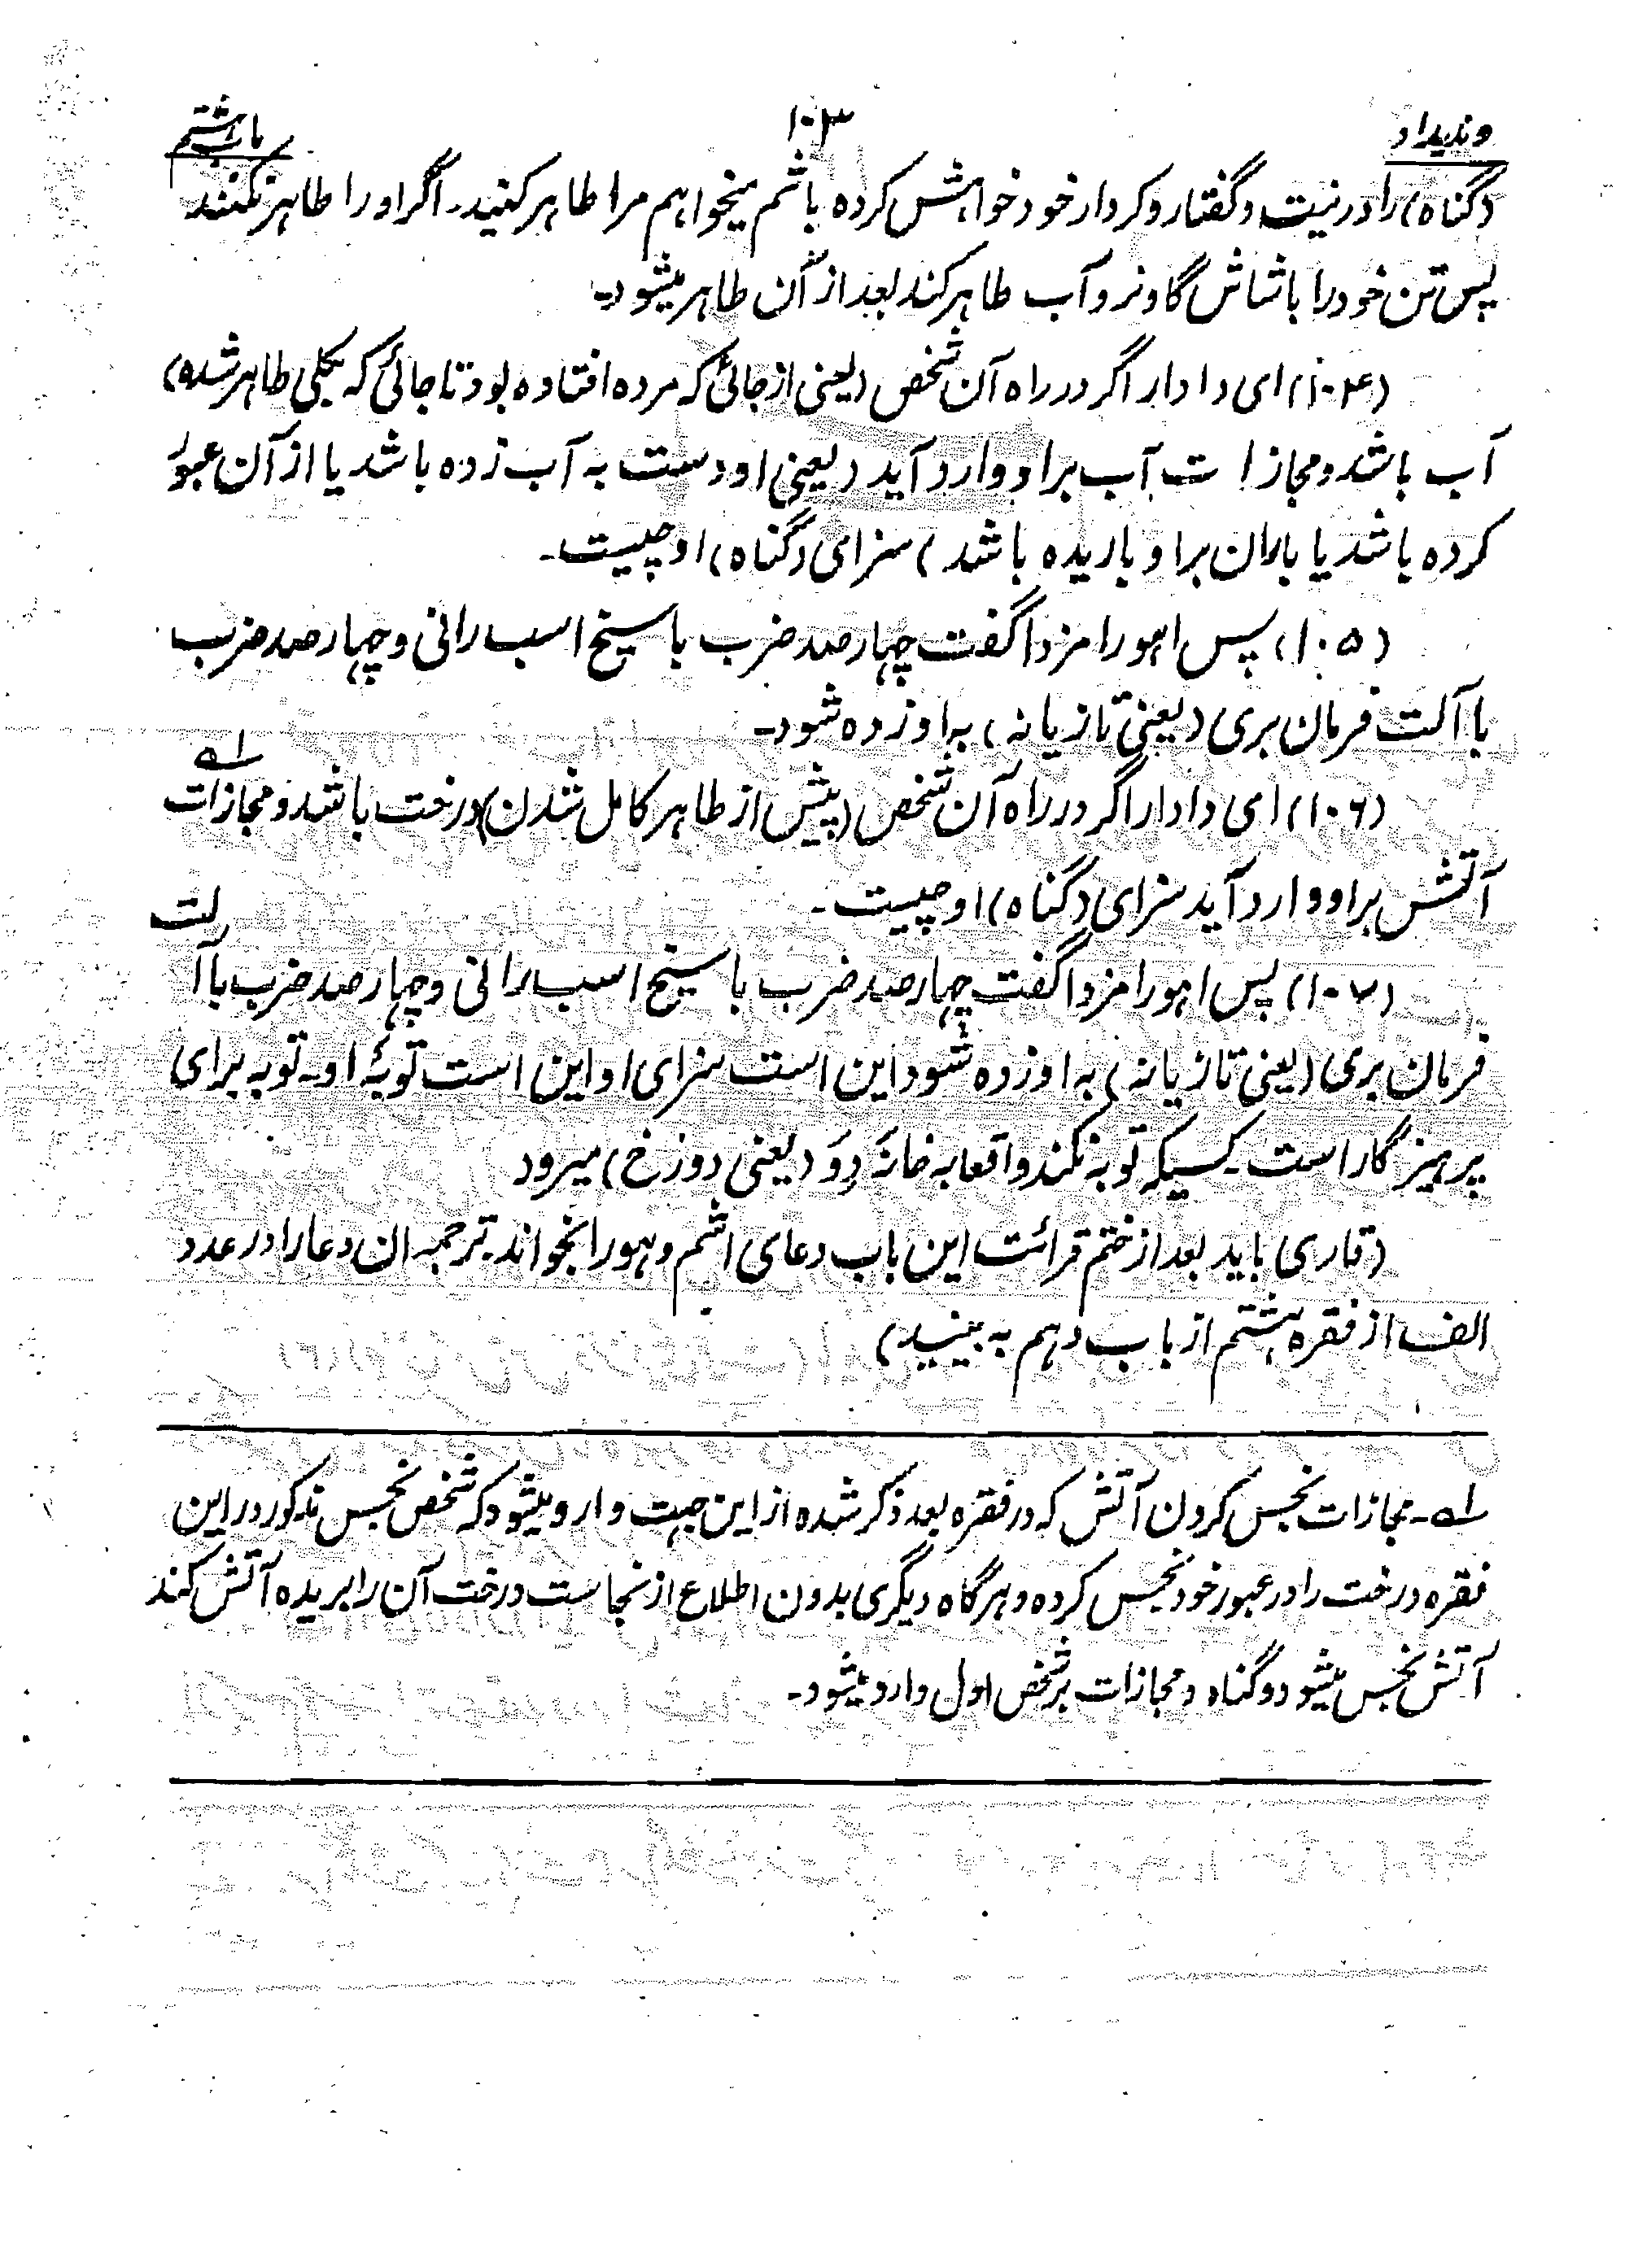 وندیداد
۱۰۳
باب هشتم
(گناه) را در نیت و گفتار و کردار خود خواهش کرده باشم میخواهم مرا طاهر کنید۔ اگر او را طاهر نکنند
پس تن خود را با شاش گاو نر و آب طاهر کند بعد از آن طاهر میشود۔
(۱۰۴) ای دادار اگر در راه آن شخص (یعنی از جائی که مرده افتاده بود تا جائی که بکلی طاهر شده)
آب باشد و مجازات آب بر او وارد آید (یعنی او دست به آب زده باشد یا از آن عبور
کرده باشد یا باران بر او باریده باشد) سزای (گناه) او چیست۔
(۱۰۵) پس اهورا مزدا گفت چهار صد ضرب با سیخ اسب رانی و چهار صد ضرب
با آلت فرمان بری (یعنی تازیانه) به او زده شود۔
(۱۰۶) ای دادار اگر در راه آن شخص (پیش از طاهر کامل شدن) درخت باشد و مجازات ۵۱
آتش بر او وارد آید سزای (گناه) او چیست۔
(۱۰۷) پس اهورا مزدا گفت چهار صد ضرب با سیخ اسب رانی و چهار صد ضرب با آلت
فرمان بری (یعنی تازیانه) به او زده شود این است سزای او این است توبۀ او۔ توبه برای
پرهیزگار است۔ کسیکه توبه نکند واقعا به خانۀ دِوَ (یعنی دوزخ) میرود
(قاری باید بعد از ختم قرائت این باب دعای اشم وهو را بخواند۔ ترجمه ان دعا را در عدد
الف از فقره هشتم از باب دهم به بینید)
۵۱۔ مجازات نجس کردن آتش که در فقره بعد ذکر شده از این جهت وارد میشود که شخص نجس مذکور در این
فقره درخت را در عبور خود نجس کرده و هرگاه دیگری بدون اطلاع از نجاست درخت آن را بریده آتش کند
آتش نجس میشود و گناه و مجازات بر شخص اول وارد میشود۔